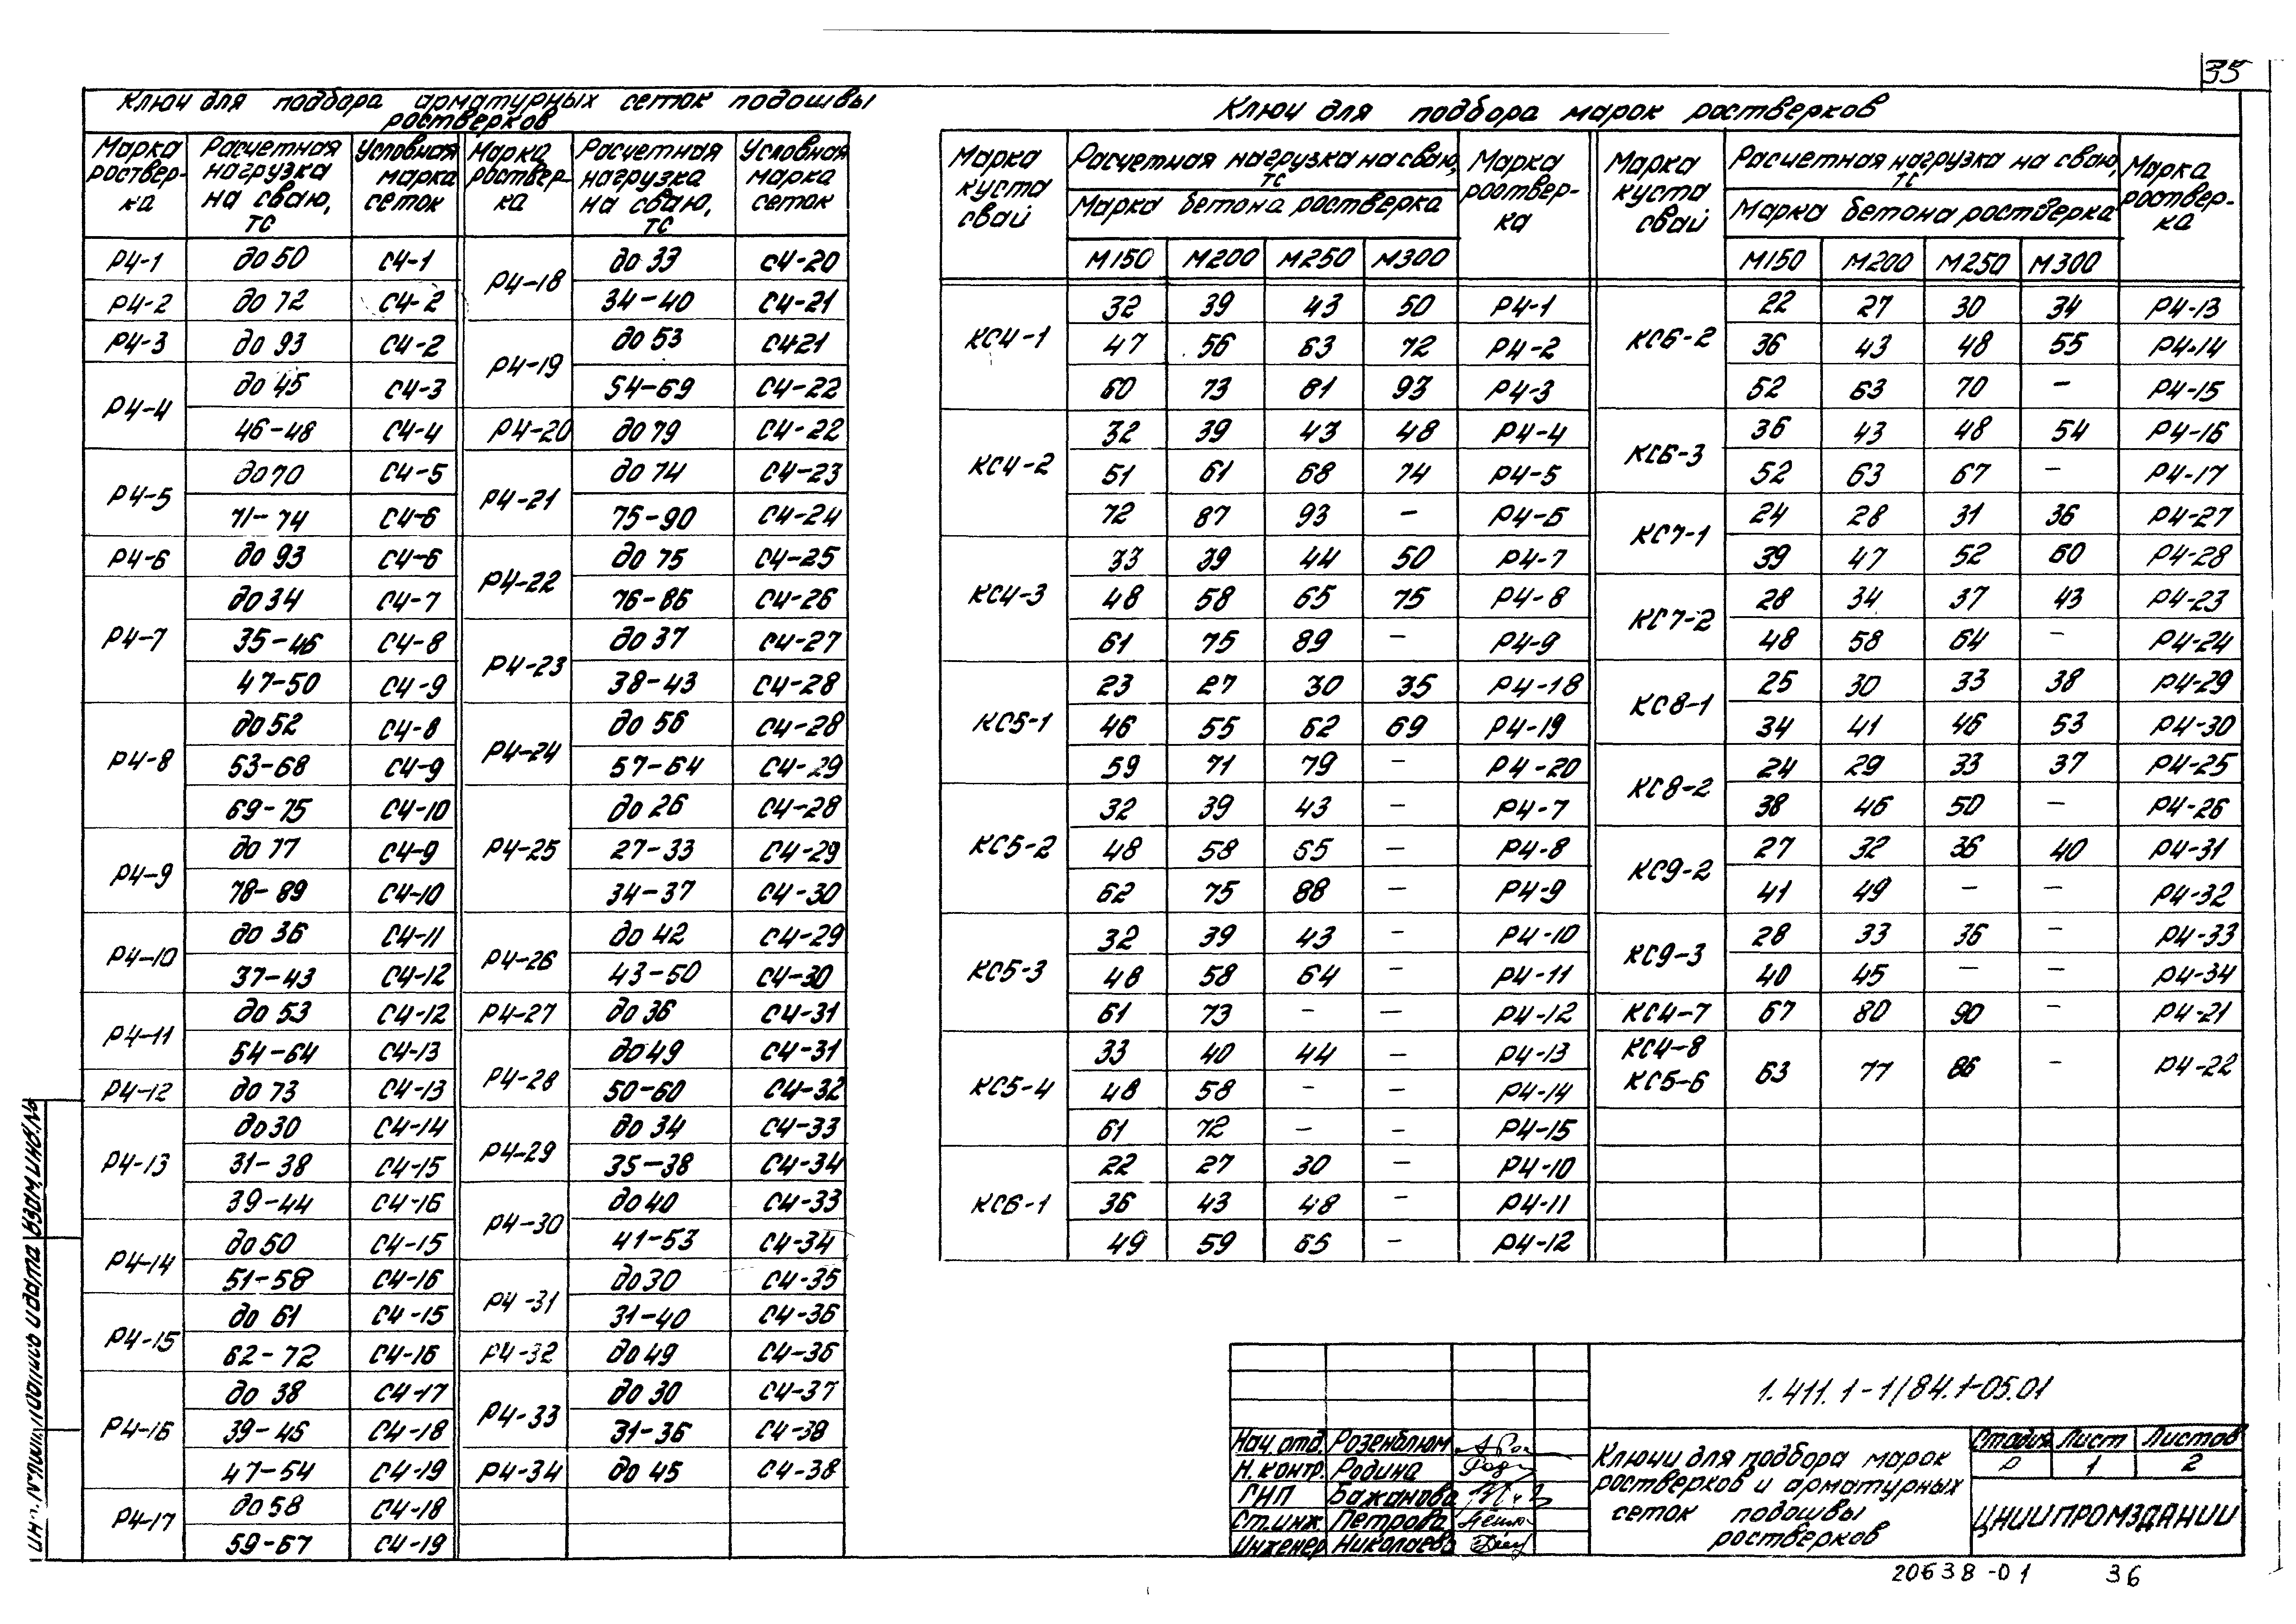 35
Ключ для подбора арматурных сеток подошвы
ростверков
Марка роствер-ка | Расчетная нагрузка на сваю, тс | Условная марка сеток | Марка роствер-ка | Расчетная нагрузка на сваю, тс | Условная марка сеток
Р4-1 до 50 С4-1 Р4-18 до 33 С4-20
Р4-2 до 72 С4-2 34-40 С4-21
Р4-3 до 93 С4-2 Р4-19 до 53 С421
Р4-4 до 45 С4-3 54-69 С4-22
46-48 С4-4 Р4-20 до 79 С4-22
Р4-5 до 70 С4-5 Р4-21 до 74 С4-23
71-74 С4-6 75-90 С4-24
Р4-6 до 93 С4-6 Р4-22 до 75 С4-25
Р4-7 до 34 С4-7 76-86 С4-26
35-46 С4-8 Р4-23 до 37 С4-27
47-50 С4-9 38-43 С4-28
Р4-8 до 52 С4-8 Р4-24 до 56 С4-28
53-68 С4-9 57-64 С4-29
69-75 С4-10 Р4-25 до 26 С4-28
Р4-9 до 77 С4-9 27-33 С4-29
78-89 С4-10 34-37 С4-30
Р4-10 до 36 С4-11 Р4-26 до 42 С4-29
37-43 С4-12 43-50 С4-30
Р4-11 до 53 С4-12 Р4-27 до 36 С4-31
54-64 С4-13 Р4-28 до 49 С4-31
Р4-12 до 73 С4-13 50-60 С4-32
Р4-13 до 30 С4-14 Р4-29 до 34 С4-33
31-38 С4-15 35-38 С4-34
39-44 С4-16 Р4-30 до 40 С4-33
Р4-14 до 50 С4-15 41-53 С4-34
51-58 С4-16 Р4-31 до 30 С4-35
Р4-15 до 61 С4-15 31-40 С4-36
62-72 С4-16 Р4-32 до 49 С4-36
Р4-16 до 38 С4-17 Р4-33 до 30 С4-37
39-46 С4-18 31-36 С4-38
47-54 С4-19 Р4-34 до 45 С4-38
Р4-17 до 58 С4-18
59-67 С4-19
Ключ для подбора марок ростверков
Марка куста свай | Расчетная нагрузка на сваю, тс | Марка роствер-ка | Марка куста свай | Расчетная нагрузка на сваю, тс | Марка роствер-ка
Марка бетона ростверка | Марка бетона ростверка
М150 М200 М250 М300 М150 М200 М250 М300
КС4-1 32 39 43 50 Р4-1 КС6-2 22 27 30 34 Р4-13
47 56 63 72 Р4-2 36 43 48 55 Р4-14
60 73 81 93 Р4-3 52 63 70 - Р4-15
КС4-2 32 39 43 48 Р4-4 КС6-3 36 43 48 54 Р4-16
51 61 68 74 Р4-5 52 63 67 - Р4-17
72 87 93 - Р4-6 КС7-1 24 28 31 36 Р4-27
КС4-3 33 39 44 50 Р4-7 39 47 52 60 Р4-28
48 58 65 75 Р4-8 КС7-2 28 34 37 43 Р4-23
61 75 89 - Р4-9 48 58 64 - Р4-24
КС5-1 23 27 30 35 Р4-18 КС8-1 25 30 33 38 Р4-29
46 55 62 69 Р4-19 34 41 46 53 Р4-30
59 71 79 - Р4-20 КС8-2 24 29 33 37 Р4-25
КС5-2 32 39 43 - Р4-7 38 46 50 - Р4-26
48 58 65 - Р4-8 КС9-2 27 32 36 40 Р4-31
62 75 88 - Р4-9 41 49 - - Р4-32
КС5-3 32 39 43 - Р4-10 КС9-3 28 33 36 - Р4-33
48 58 64 - Р4-11 40 45 - - Р4-34
61 73 - - Р4-12 КС4-7 67 80 90 - Р4-21
КС5-4 33 40 44 - Р4-13 КС4-8 КС5-6 63 77 86 - Р4-22
48 58 - - Р4-14
61 72 - - Р4-15
КС6-1 22 27 30 - Р4-10
36 43 48 - Р4-11
49 59 65 - Р4-12
1.411.1-1/84.1-05.01
Нач. отд. Розенблюм
Н. контр. Родина
ГИП Бажанова
Ст. инж. Петрова
Инженер Николаева
Ключи для подбора марок
ростверков и арматурных
сеток подошвы
ростверков
Стадия Лист Листов
Р 1 2
ЦНИИПРОМЗДАНИЙ
20638-01 36